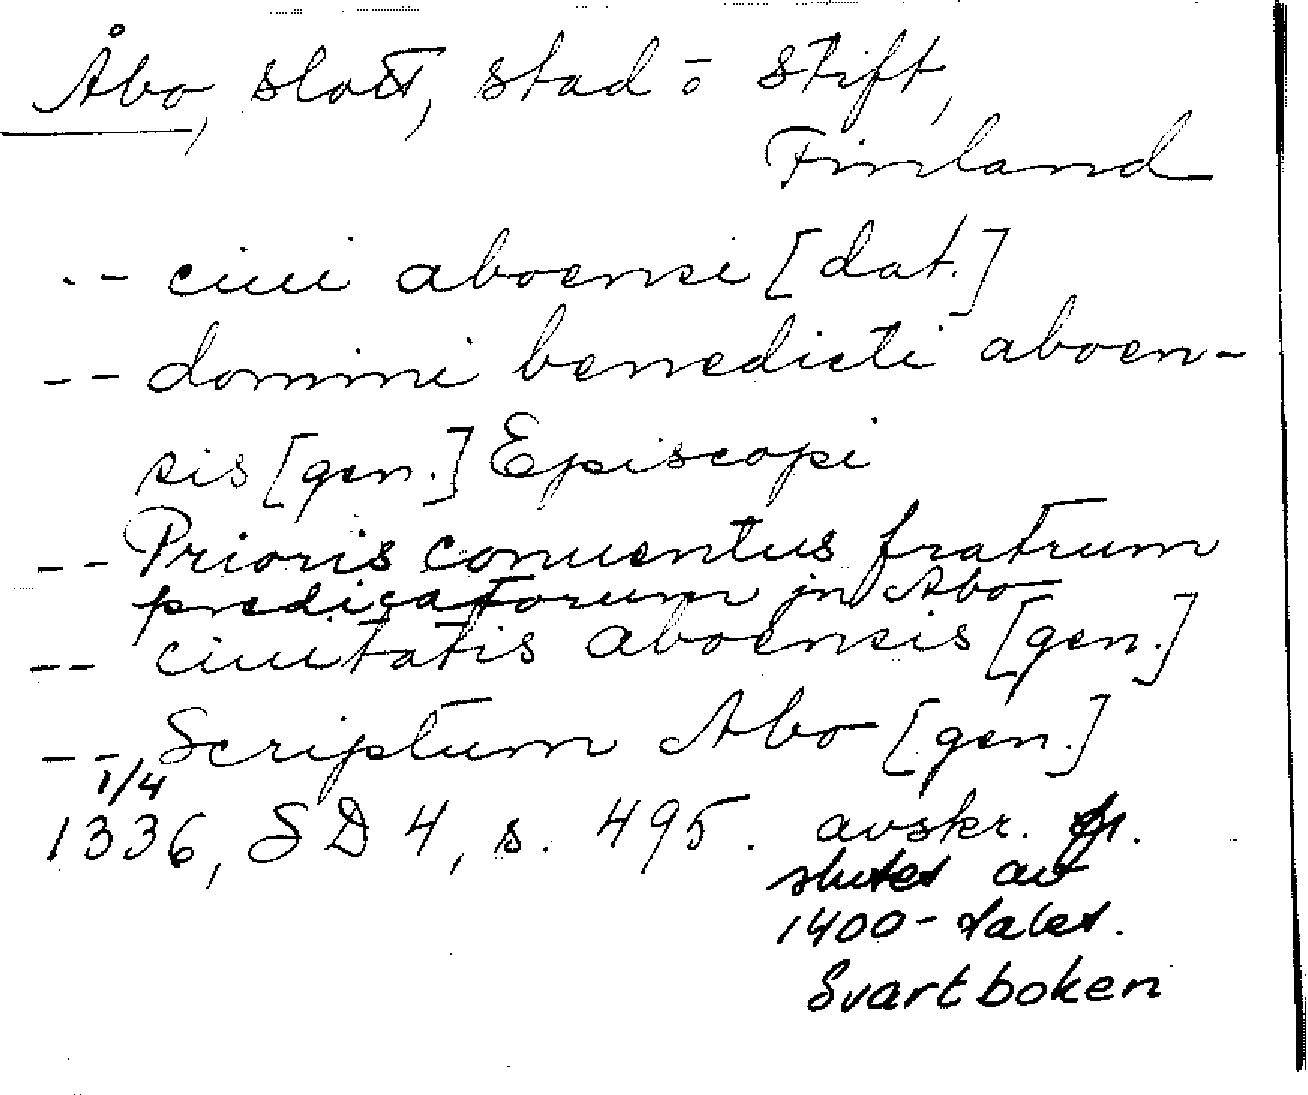 Åbo, slott, stad o stift,
Finland
-- ciui aboensi [dat.]
-- domini benedicti aboen-
sis [gen.] Episcopi
-- Prioris conuentus fratrum
predicatorum jn Abo
-- ciuitatis aboensis [gen.]
-- Scriptum Abo [gen.]
1/4
1336, SD 4, s. 495. avskr. fr.
slutet av
1400-talet.
Svartboken